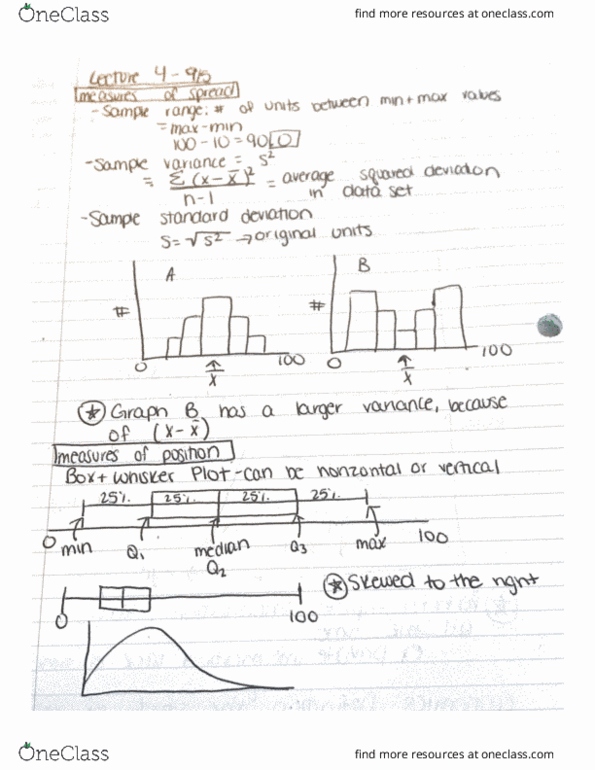 OneClass
find more resources at oneclass.com
Lecture 4 - 9/5
measures of spread
- Sample range: # of units between min + max values
= max - min
100 - 10 = 90
- Sample variance = s²
= Σ(x - x̄)² / n - 1 = average squared deviation in data set
- Sample standard deviation
S = √s² → original units
A
B
#
#
0
100
0
100
x̄
x̄
* Graph B has a larger variance, because
of (x - x̄)
measures of position
Box + Whisker Plot - can be horizontal or vertical
25%. 25%. 25%. 25%.
0 min Q₁ median Q₃ max 100
Q₂
* Skewed to the right
0
100
OneClass
find more resources at oneclass.com